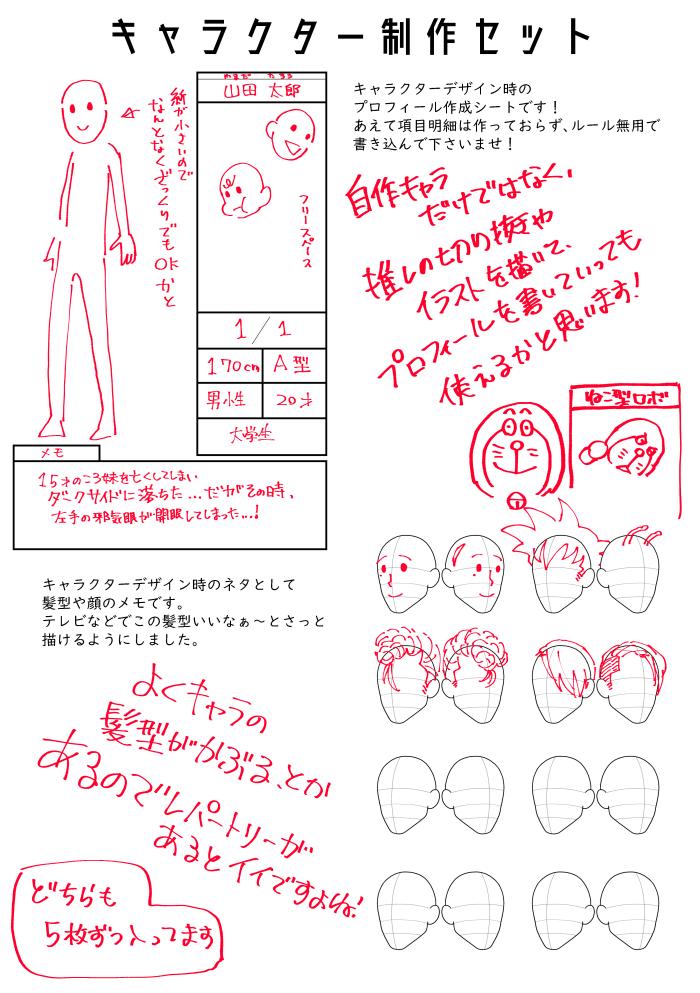 キャラクター制作セット
やまだ たろう
山田 太郎
紙が小さいので
なんとなくざっくりでも
OKかと
フリースペース
1/1
170cm
A型
男性
20才
大学生
メモ
15才のころ妹を亡くしてしまい
ダークサイドに落ちた…だがその時、
左手の邪気眼が開眼してしまった…!
キャラクターデザイン時の
プロフィール作成シートです!
あえて項目明細は作っておらず、ルール無用で
書き込んで下さいませ!
自作キャラ
だけではなく、
推しの切り抜きや
イラストを描いて、
プロフィールを書いていっても
使えるかと思います!
ねこ型ロボ
キャラクターデザイン時のネタとして
髪型や顔のメモです。
テレビなどでこの髪型いいなぁ~とさっと
描けるようにしました。
よくキャラの
髪型がかぶる、とか
あるのでレパートリーが
あるとイイですよね!
どちらも
5枚ずつ入ってます